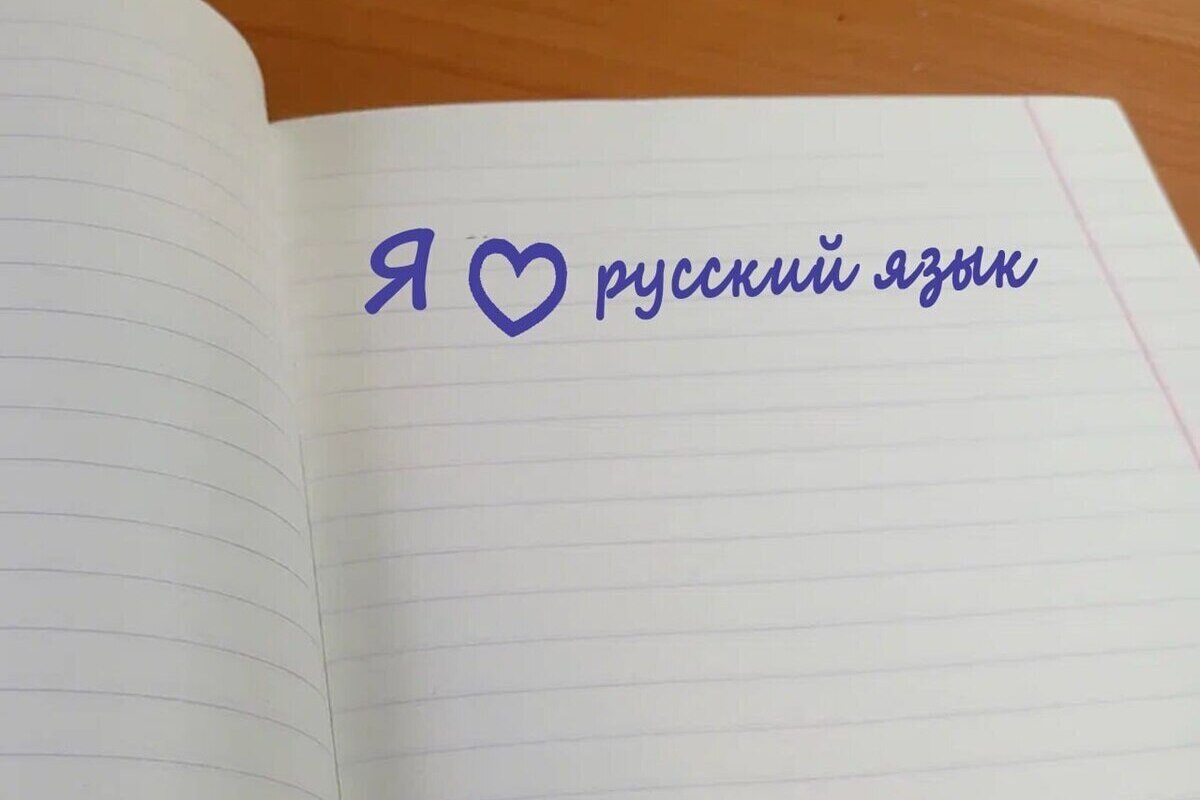 Я ♡ русский язык